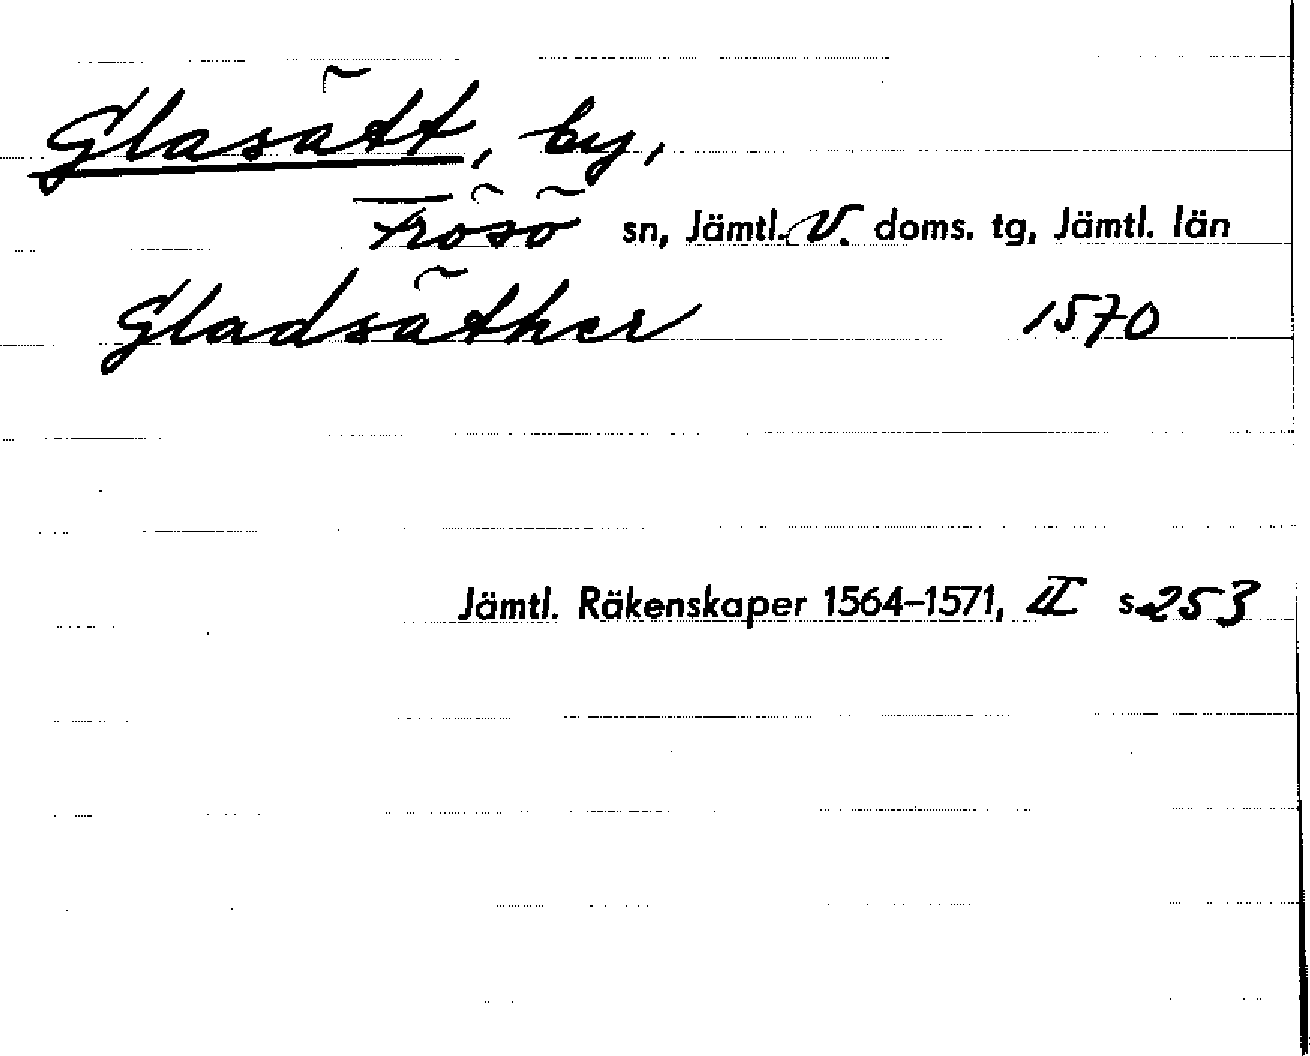 Glasätt, by,
Frösö sn, Jämtl. V. doms. tg, Jämtl. län
Gladsäther 1570
Jämtl. Räkenskaper 1564–1571, II s. 253